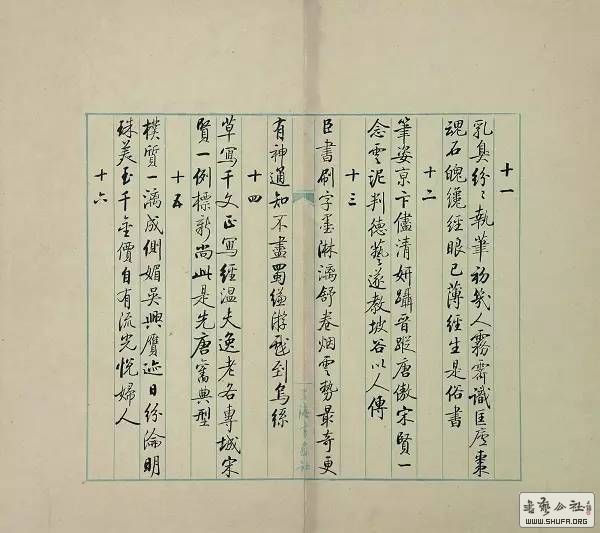 十一
乳臭紛〻執筆初幾人霧霽識匡廬棗
魂石魄纔經眼已薄經生是俗書
十二
筆姿京卞儘清妍躡晉蹤唐傲宋賢一
念雲泥判德藝遂教坡谷以人傳
十三
臣書刷字墨淋漓舒卷烟雲勢最奇更
有神通知不盡蜀縑游戲到烏絲
十四
草寫千文正寫經溫夫逸老各專城宋
賢一例標新尚此是先唐舊典型
十五
樸質一漓成側媚吳興贗迹日紛淪明
珠美玉千金價自有流光悅婦人
十六
WWW.SHUFA.ORG